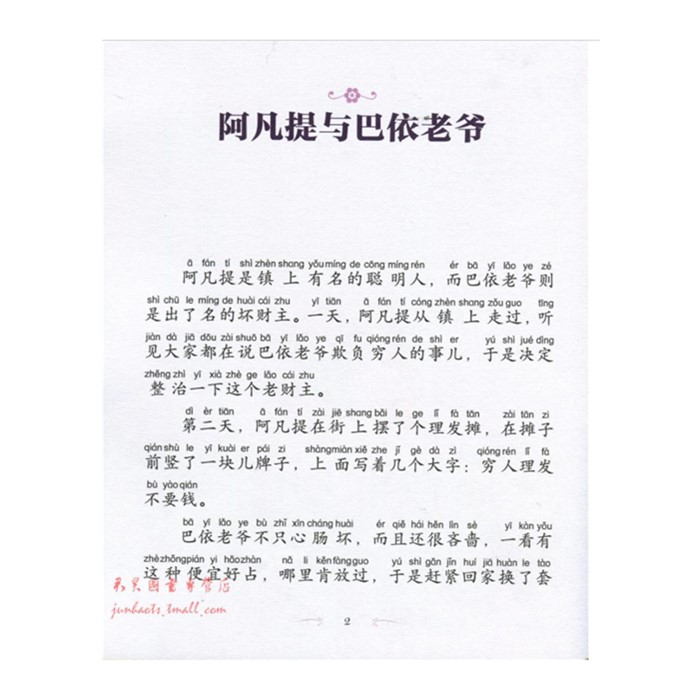 阿凡提与巴依老爷
ā fán tí shì zhèn shang yǒu míng de cōng míng rén ér bā yī lǎo ye zé
阿凡提是镇上有名的聪明人，而巴依老爷则
shì chū le míng de huài cái zhu yī tiān ā fán tí cóng zhèn shang zǒu guo tīng
是出了名的坏财主。一天，阿凡提从镇上走过，听
jiàn dà jiā dōu zài shuō bā yī lǎo ye qī fu qióng rén de shì er yú shì jué dìng
见大家都在说巴依老爷欺负穷人的事儿，于是决定
zhěng zhì yī xià zhè ge lǎo cái zhu
整治一下这个老财主。
dì èr tiān ā fán tí zài jiē shang bǎi le ge lǐ fà tān zài tān zi
第二天，阿凡提在街上摆了个理发摊，在摊子
qián shù le yī kuài er pái zi shàng miàn xiě zhe jǐ gè dà zì qióng rén lǐ fà
前竖了一块儿牌子，上面写着几个大字：穷人理发
bù yào qián
不要钱。
bā yī lǎo ye bù zhǐ xīn cháng huài ér qiě hái hěn lìn sè yī kàn yǒu
巴依老爷不只心肠坏，而且还很吝啬，一看有
zhè zhǒng pián yi hǎo zhàn nǎ li kěn fàng guo yú shì gǎn jǐn huí jiā huàn le tào
这种便宜好占，哪里肯放过，于是赶紧回家换了套
君昊图书专营店
junhaots.tmall.com
2